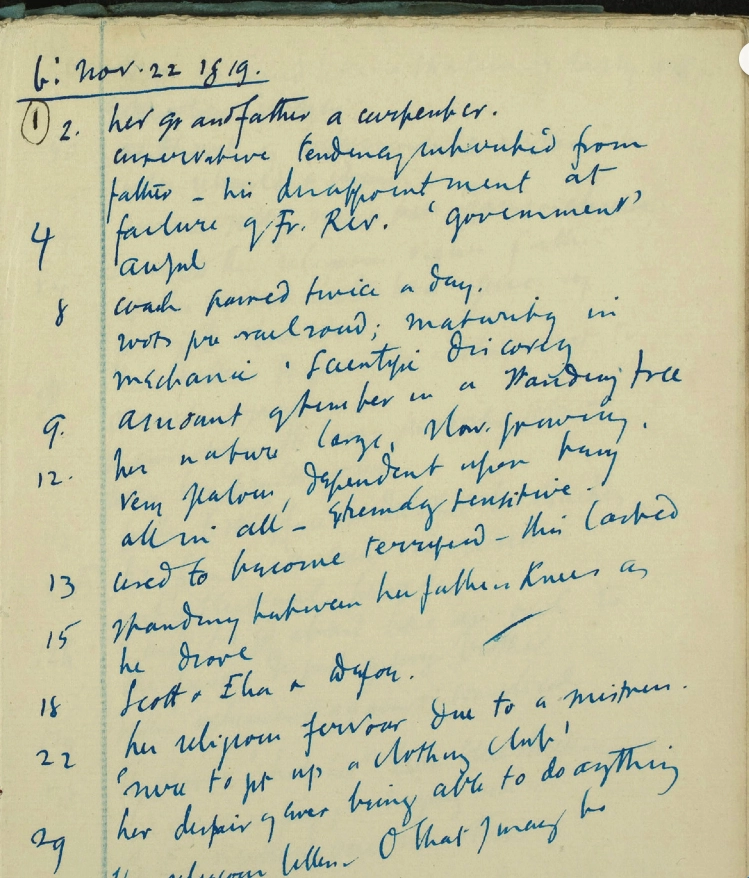 b: Nov. 22 1819.
① 2. her grandfather a carpenter.
conservative tendency inherited from
father – his disappointment at
4 failure of Fr. Rev. 'government'
awful
8 coach passed twice a day.
roots pre railroad; maturity in
mechanic & scientific discovery
9. amount of timber in a standing tree
12. her nature large, slow growing,
very jealous, dependent upon being
all in all – extremely sensitive.
13 used to become terrified – this lasted
15 standing between her father's knees as
he drove
18 Scott & Elia & Defoe.
22 her religious fervour due to a mistress.
'sure to get up a clothing club'
29 her despair of ever being able to do anything
religious letters. O that I may be